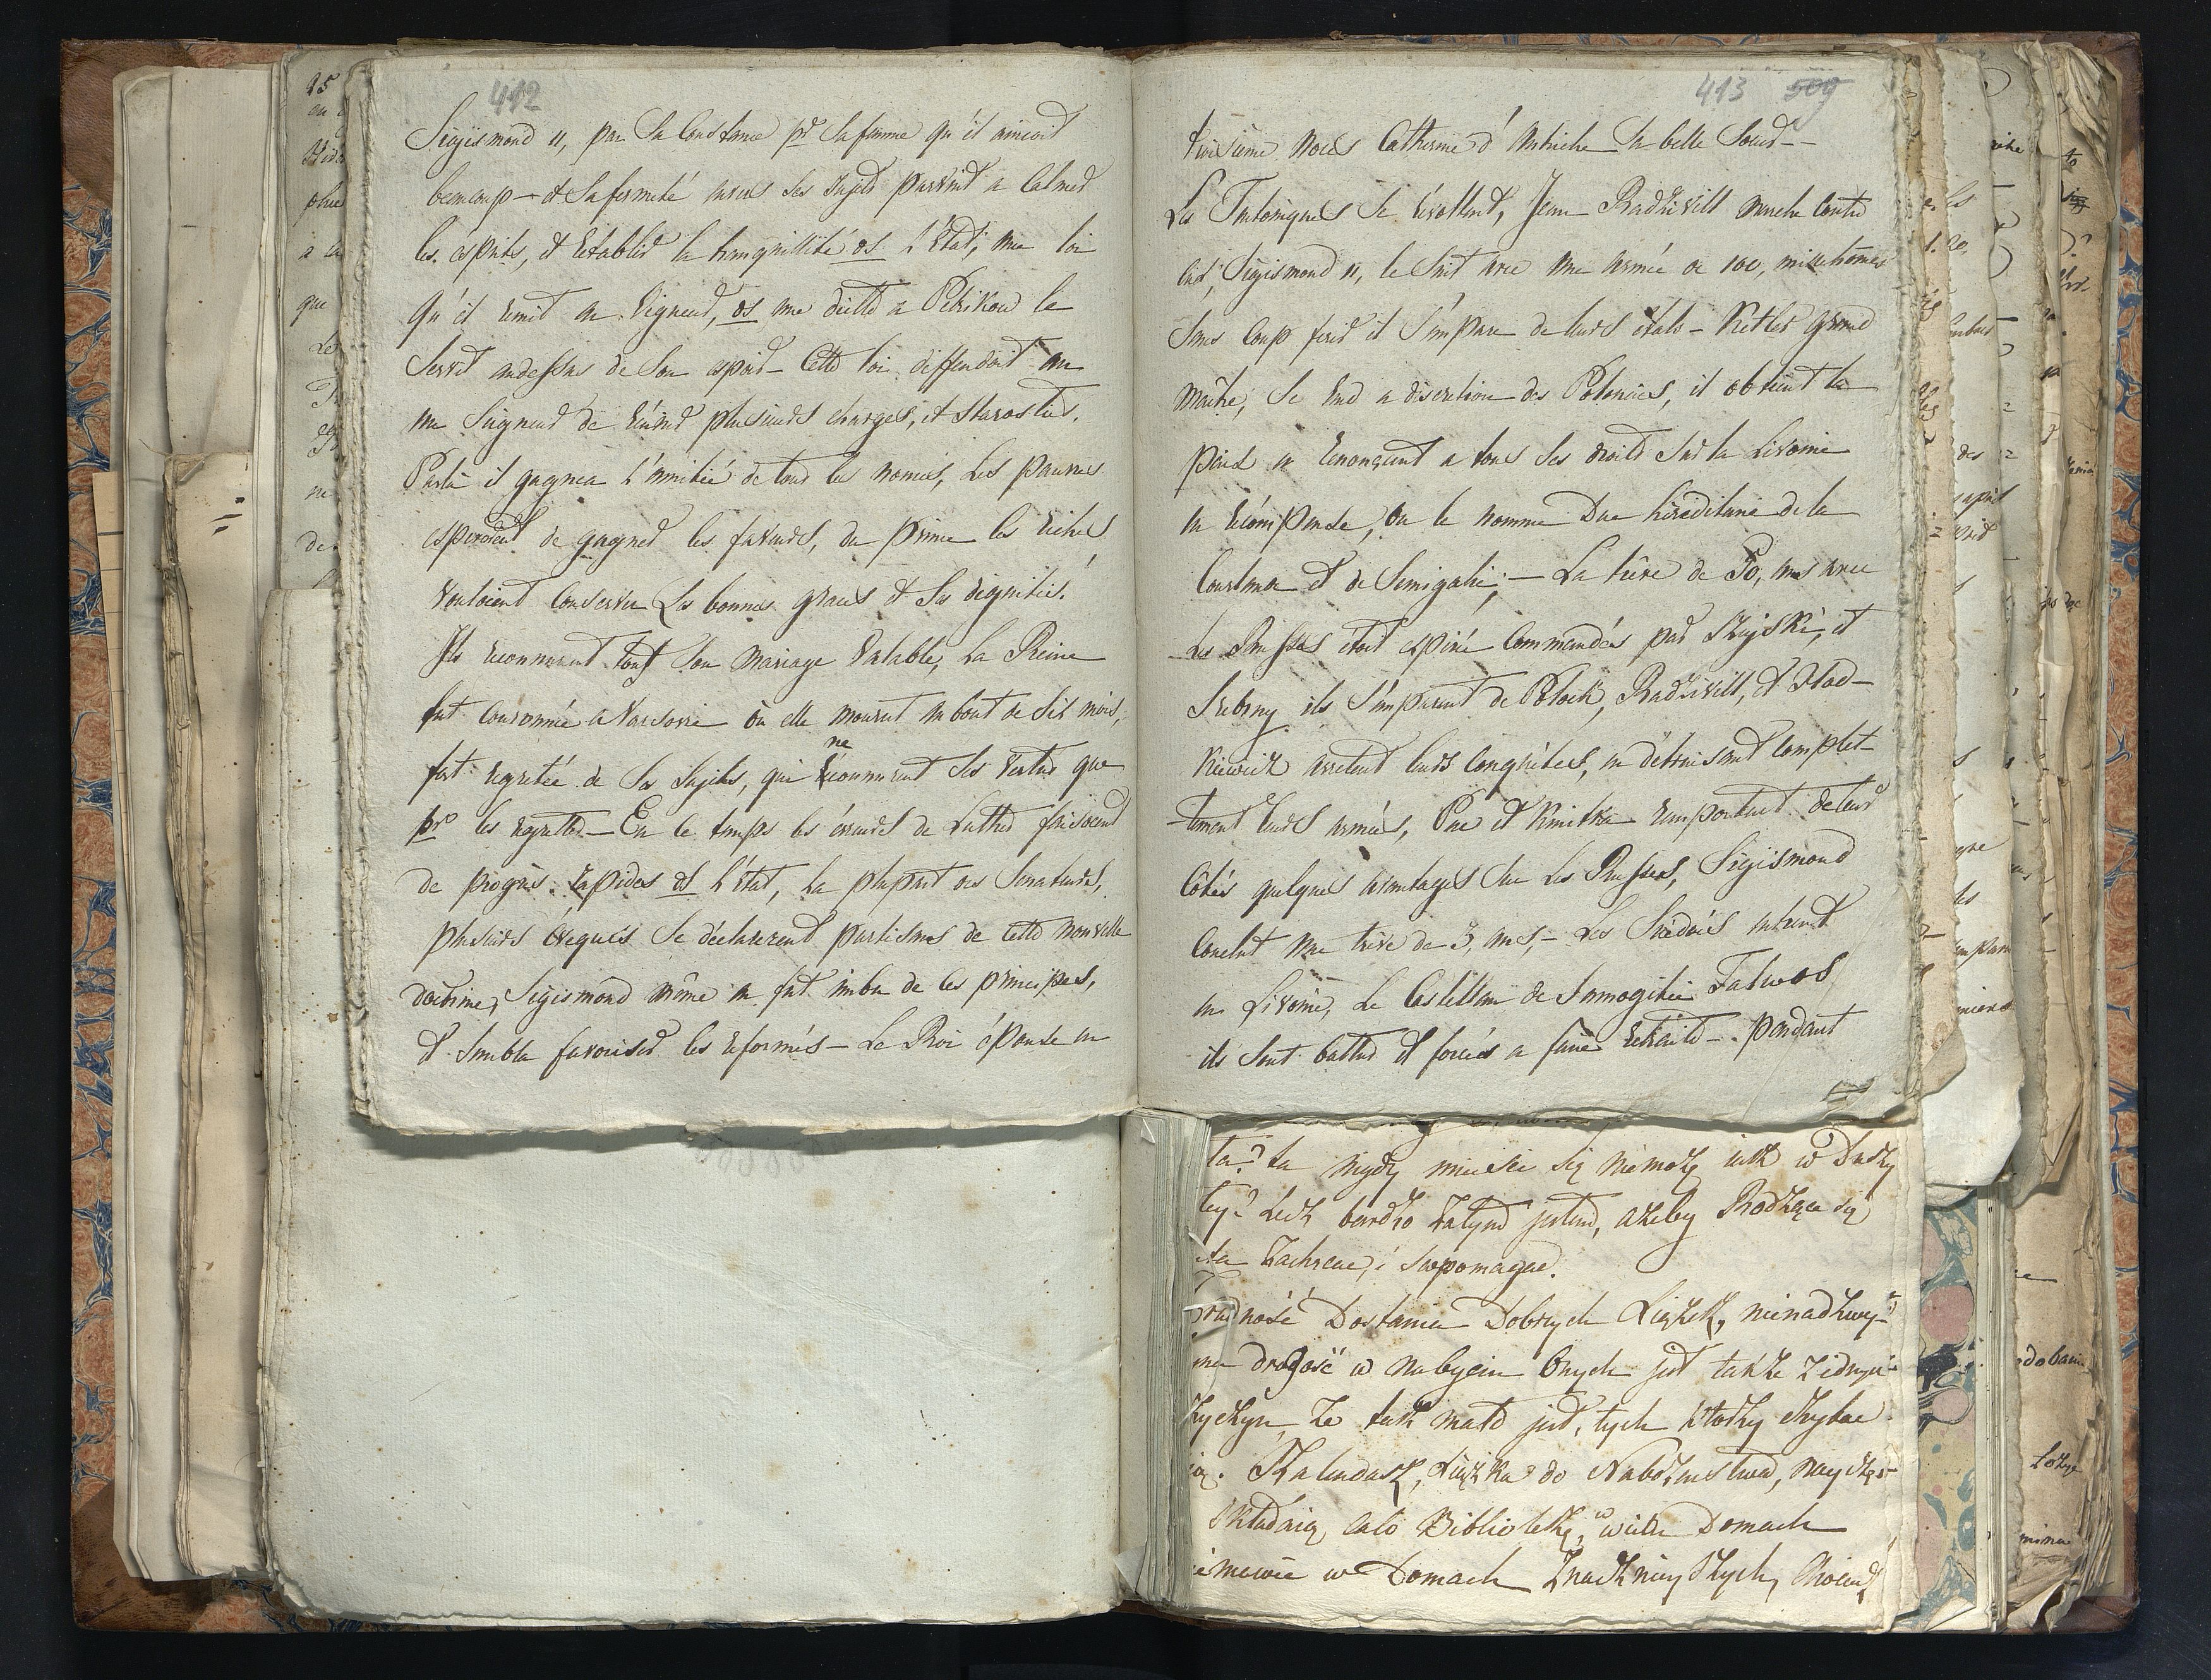 412
Sigismond 11, par Sa Constance pr Sa femme qu'il aimoit
beaucoup – et Sa fermeté avec ses sujets parvint a Calmer
les esprits, et Rétablir la tranquillité ds l'Etat; une loi
Qu'il remit en Vigueur, ds une diette a Petrikow le
Servit audessus de Son espoir – Cette loi diffendoit
un Seigneur de Réunir plusieurs charges, et Starosties.
Parla il gagnea l'amitié de tous les nonces, Les pauvres
esperoient de gagner les faveurs, du prince les riches
vouloient Conserver Ses bonnes graces et Ses dignités.
Ils reconnurent tous Son Mariage Valable, La Reine
fut Couronnée a Varsovie où elle mourut au bout de Six mois,
fort regretée de Ses Sujets, qui ne reconnurent Ses Vertus que
pr les regretter – En ce temps les érreurs de Luther faisoient
de progrès rapides ds l'état, la plupart des Senateurs,
plusieurs évêques Se déclarerent partisans de cette nouvelle
doctrine, Sigismond même en fut imbu de ces principes,
et Sembla favoriser les reformés – Le Roi épouse en
413 509
troisieme noces Catherine d'Autriche Sa belle Soeur –
Les Teutoniques Se révoltent, Jean Radzivill marche Contre
eux, Sigismond 11, le Suit avec une armée de 100, mille homes
Sans Coup ferir il S'empare de leurs états – Ketler Grand
Maitre, Se rend a discretion des Polonois, il obtient la
paix en renonçant a tous Ses droits Sur la Livonie
en récompense, on le nomme Duc héréditaire de la
Courlande et de Semigalie; – La trêve de 50, ans avec
Les Russes étoit expirée Commandés par Szujski, et
Srebrny ils S'emparent de Polock, Radzivill, et Chod–
kiewicz arretent leurs Conquêtes, en détruisant Complet–
–tement leurs armées, Pac et Kmitha remportent de leur
Côtés quelques avantages Sur Les Russes, Sigismond
Conclut une trêve de 3, ans, – Les Suédois entrent
en Livonie, Le Castellan de Samogitie Talwos
ils Sont battus et forcés a faire retraite – pendant
ta? ta nigdy mieścić się niemoże iak w Duszy
tey? Lecz bardzo zatym jestem, ażeby Rodzące się
zachęcać, i wspomagać.
Trudność Dostania Dobrych Xiążek, nienadzwy–
drogość w nabyciu Onych jest także
że tak mało jest, tych ktorzy czytać
Kalendarz, Xiążka do Nabożeństwa, nayczęś–
składaią całą Bibliotekę, w wielu Domach
w Domach Znacznieyszych,